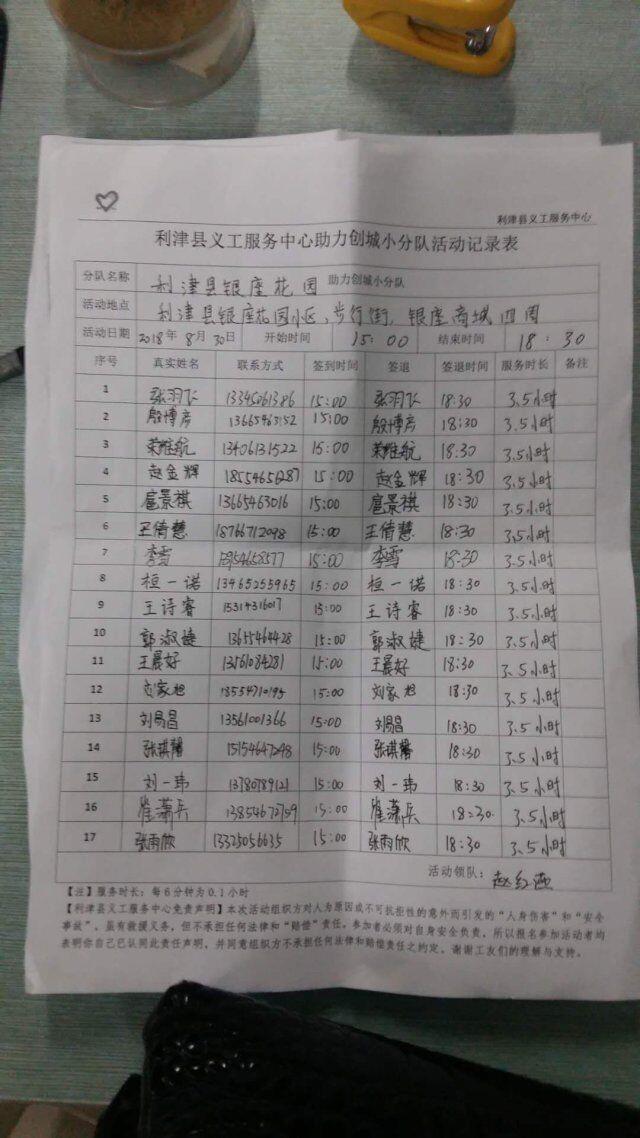 利津县义工服务中心
利津县义工服务中心助力创城小分队活动记录表
分队名称 利津县银座花园 助力创城小分队
活动地点 利津县银座花园小区,步行街,银座商城四周
活动日期 2018年8月30日 开始时间 15:00 结束时间 18:30
序号 真实姓名 联系方式 签到时间 签退 签退时间 服务时长 备注
1 张羽飞 13345061386 15:00 张羽飞 18:30 3.5小时
2 殷博彦 15:00 殷博彦 18:30 3.5小时
3 荣维航 13406131522 15:00 荣维航 18:30 3.5小时
4 赵金辉 15:00 赵金辉 18:30 3.5小时
5 扈景祺 13665463016 15:00 扈景祺 18:30 3.5小时
6 王倩慧 18766712098 15:00 王倩慧 18:30 3.5小时
7 李雪 15954658577 15:00 李雪 18:30 3.5小时
8 桓一诺 13465255965 15:00 桓一诺 18:30 3.5小时
9 王诗睿 15314316017 15:00 王诗睿 18:30 3.5小时
10 郭淑婕 13655464428 15:00 郭淑婕 18:30 3.5小时
11 王晨好 13561084281 15:00 王晨好 18:30 3.5小时
12 刘家旭 15:00 刘家旭 18:30 3.5小时
13 刘易昌 13561001366 15:00 刘易昌 18:30 3.5小时
14 张琪馨 15154647298 15:00 张琪馨 18:30 3.5小时
15 刘一玮 13780789121 15:00 刘一玮 18:30 3.5小时
16 崔萧兵 13854672759 15:00 崔萧兵 18:30 3.5小时
17 张雨欣 13325056635 15:00 张雨欣 18:30 3.5小时
活动领队: 赵红燕
【注】服务时长:每6分钟为0.1小时
【利津县义工服务中心免责声明】本次活动组织方对人为原因或不可抗拒性的意外而引发的“人身伤害”和“安全
事故”,虽有救援义务,但不承担任何法律和“赔偿”责任。参加者必须对自身安全负责,所以报名参加活动者均
表明你自己已认同此责任声明,并同意组织方不承担任何法律和赔偿责任之约定。谢谢工友们的理解与支持。